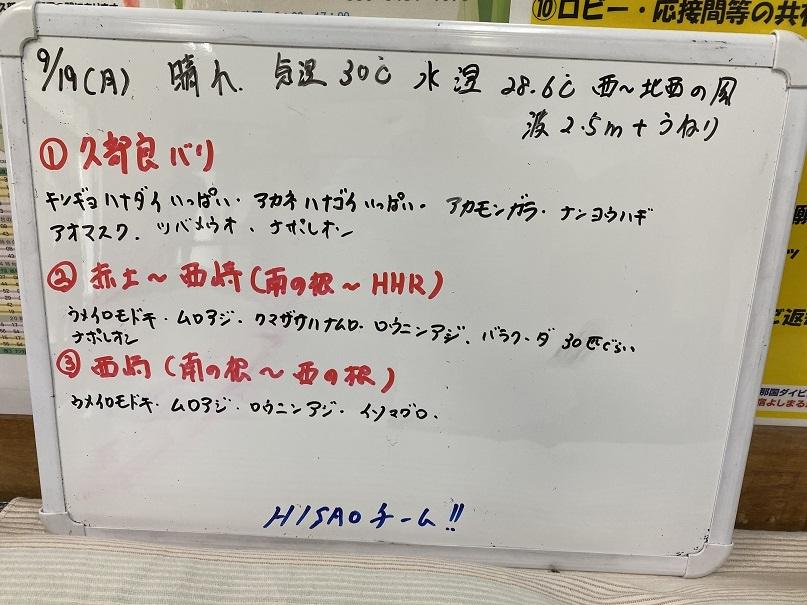 ⑩ロビー・応接間等の共有
9/19(月) 晴れ. 気温 30℃ 水温 28.6℃ 西〜北西の風
波 2.5m + うねり
① 久部良バリ
キンギョハナダイ いっぱい・ アカネハナゴイ いっぱい・ アカモンガラ・ ナンヨウハギ
アオマスク. ツバメウオ・ ナポレオン
② 赤土〜西崎(南の根〜HHR)
ウメイロモドキ・ムロアジ・クマザサハナムロ・ロウニンアジ. バラクーダ 30匹ぐらい
ナポレオン
③ 西崎(南の根〜西の根)
ウメイロモドキ・ムロアジ・ロウニンアジ・イソマグロ.
HISAOチーム!!
願
ご返
那国ダイビ
宿よしまる